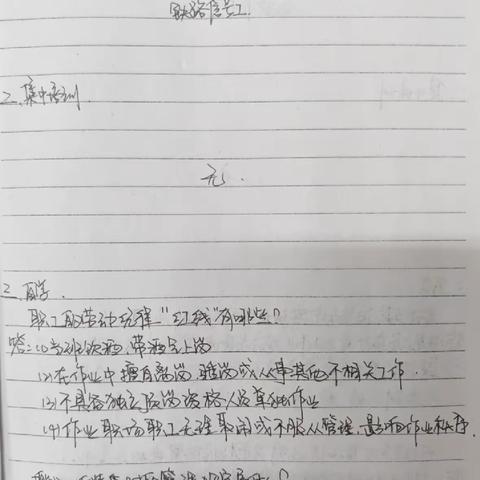 铁路信号工
二、集中培训
无.
三、自学.
职工劳动纪律"红线"有哪些?
答:(1)当班饮酒,带酒气上岗
(2)在作业中擅自离岗,串岗或从事其他不相关工作.
(3)不具备独立顶岗资格人员单独作业
(4)作业职场职工无理取闹或不服从管理,影响作业秩序.